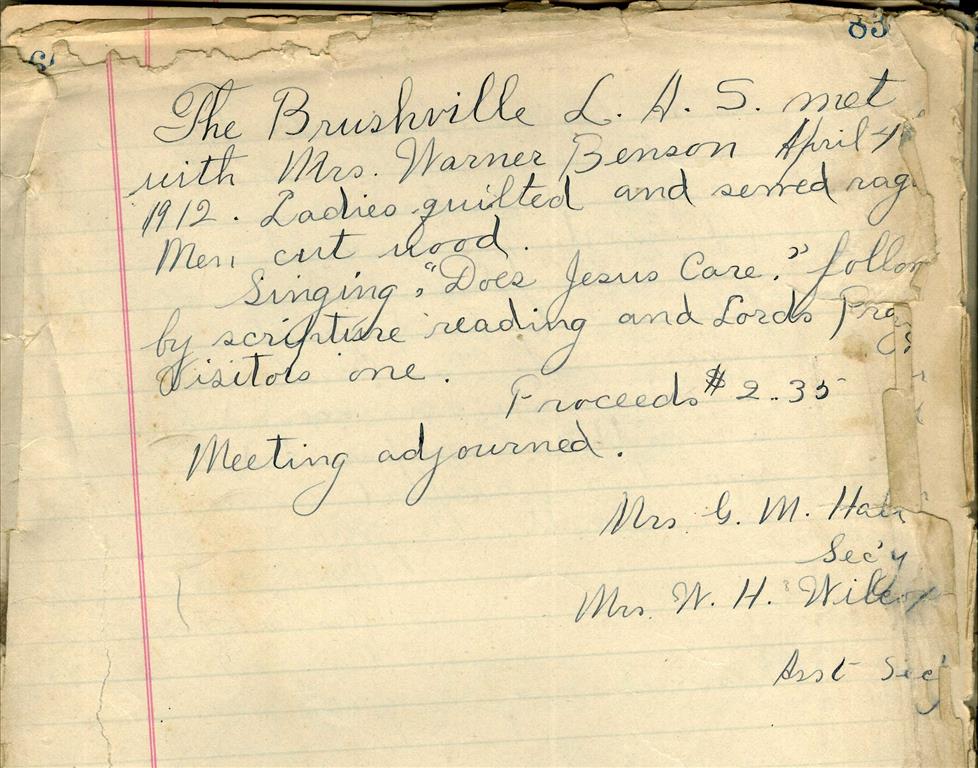 83
The Brushville L. A. S. met
with Mrs. Warner Benson April 4
1912. Ladies quilted and sewed rag
Men cut wood.
Singing, "Does Jesus Care." follow
by scripture reading and Lords Pray
Visitors one.
Proceeds $2.35
Meeting adjourned.
Mrs G. M.
Sec'y
Mrs. W. H. Wilcox
Asst Sec'y